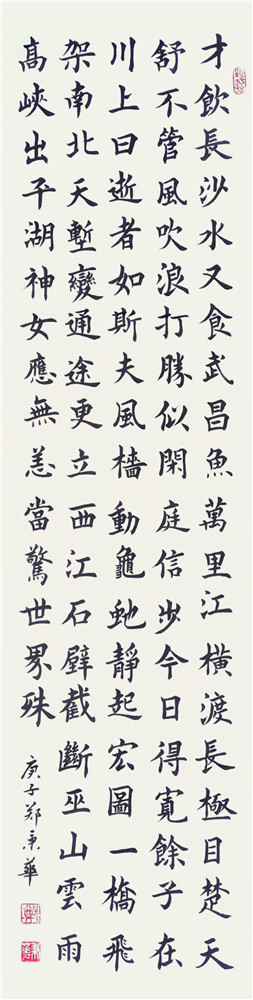 才飲長沙水又食武昌魚萬里江橫渡長極目楚天
舒不管風吹浪打勝似閑庭信步今日得寬餘子在
川上曰逝者如斯夫風檣動龜虵靜起宏圖一橋飛
架南北天塹變通途更立西江石壁截斷巫山雲雨
高峽出平湖神女應無恙當驚世界殊
庚子鄭秉華